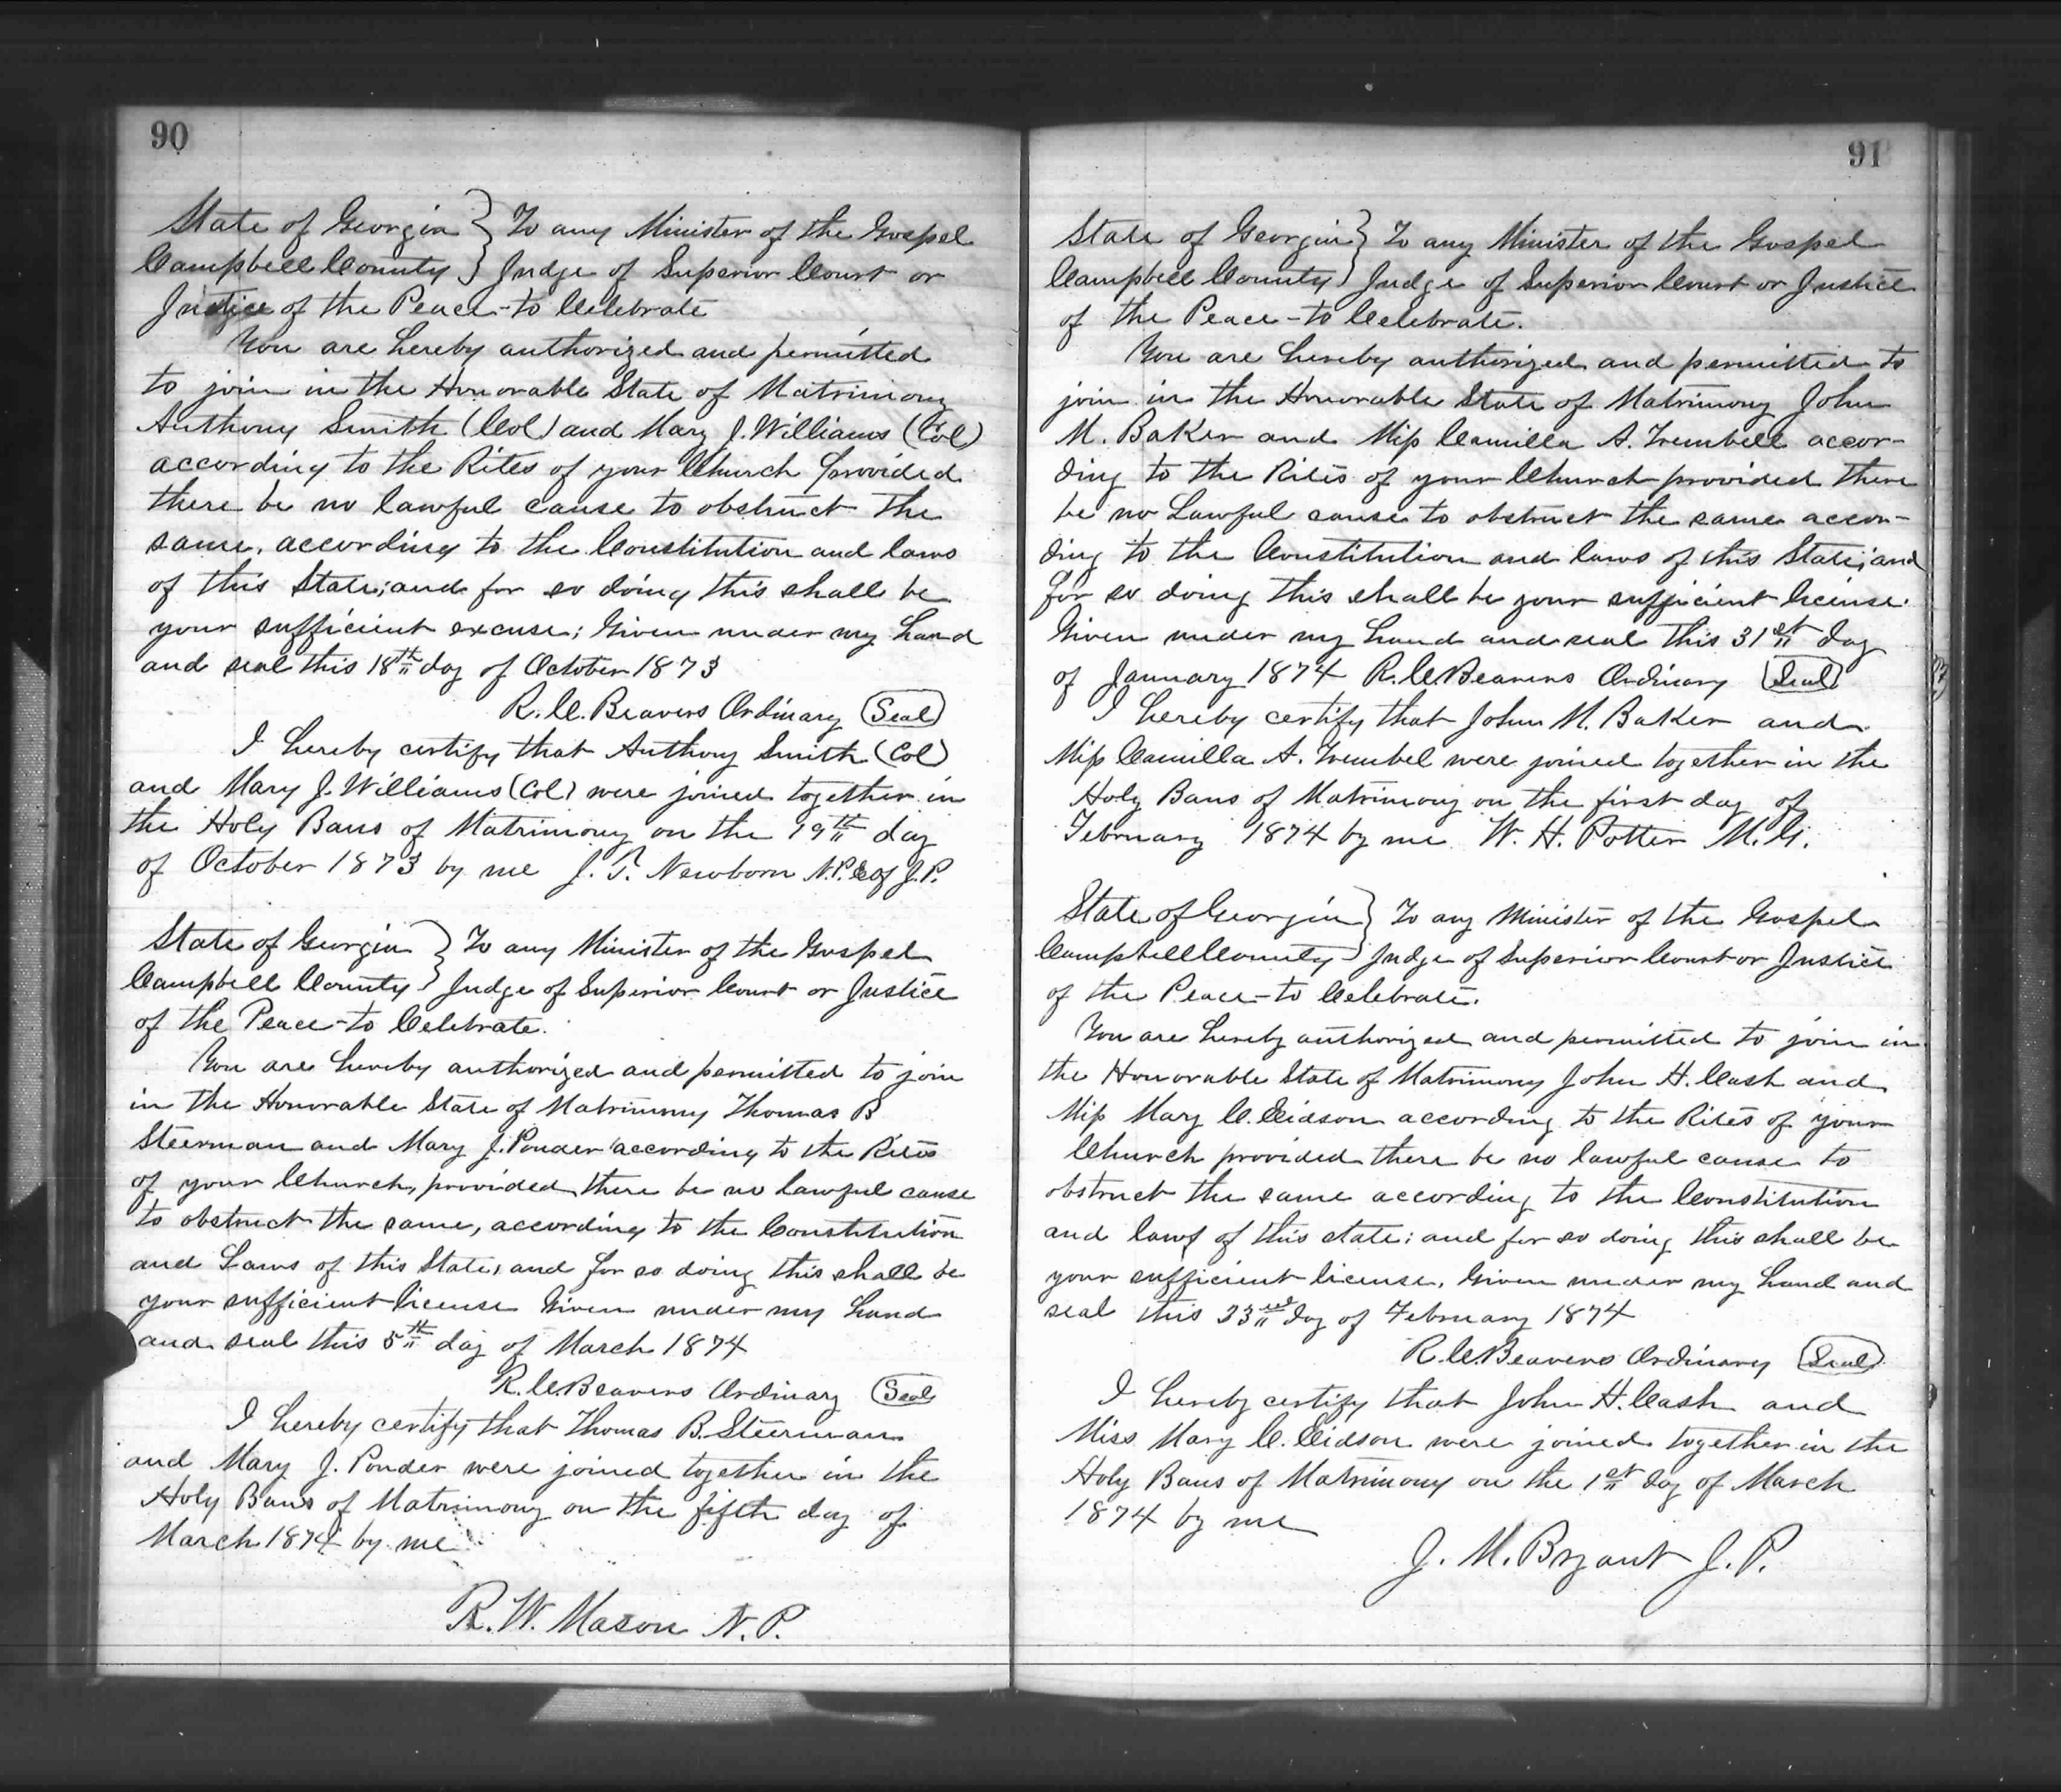 90
State of Georgia } To any Minister of the Gospel
Campbell County } Judge of Superior Court or
Justice of the Peace-to Celebrate
You are hereby authorized and permitted
to join in the Honorable State of Matrimony
Anthony Smith (Col) and Mary J. Williams (Col)
according to the Rites of your Church provided
there be no lawful cause to obstruct the
same, according to the Constitution and laws
of this State; and for so doing this shall be
your sufficient excuse; Given under my hand
and seal this 18th day of October 1873
R. C. Beavers Ordinary (Seal)
I hereby certify that Anthony Smith (Col)
and Mary J. Williams (Col) were joined together in
the Holy Bans of Matrimony on the 19th day
of October 1873 by me J. T. Newborn N.P. & Of J.P.
State of Georgia } To any Minister of the Gospel
Campbell County } Judge of Superior Court or Justice
of the Peace-to Celebrate.
You are hereby authorized and permitted to join
in the Honorable State of Matrimony Thomas B
Steerman and Mary J. Ponder according to the Rites
of your Church, provided there be no lawful cause
to obstruct the same, according to the Constitution
and Laws of this State, and for so doing this shall be
your sufficient license Given under my hand
and seal this 5th day of March 1874
R. C. Beavers Ordinary (Seal)
I hereby certify that Thomas B. Steerman
and Mary J. Ponder were joined together in the
Holy Bans of Matrimony on the fifth day of
March 1874 by me
R. W. Mason N. P.
91
State of Georgia } To any Minister of the Gospel
Campbell County } Judge of Superior Court or Justice
of the Peace-to Celebrate.
You are hereby authorized and permitted to
join in the Honorable State of Matrimony John
M. Baker and Miss Camilla A. Trembell accor-
ding to the Rites of your Church provided there
be no Lawful cause to obstruct the same accor-
ding to the Constitution and laws of this State; and
for so doing this shall be your sufficient license.
Given under my hand and seal this 31st day
of January 1874 R. C. Beavers Ordinary (Seal)
I hereby certify that John M. Baker and
Miss Camilla A. Trembel were joined together in the
Holy Bans of Matrimony on the first day of
February 1874 by me W. H. Potter M. G.
State of Georgia } To any Minister of the Gospel
Campbell County } Judge of Superior Court or Justice
of the Peace-to Celebrate.
You are hereby authorized and permitted to join in
the Honorable State of Matrimony John H. Cash and
Miss Mary C. Eidson according to the Rites of your
Church provided there be no lawful cause to
obstruct the same according to the Constitution
and laws of this state; and for so doing this shall be
your sufficient license, Given under my hand and
seal this 23rd day of February 1874
R. C. Beavers Ordinary (Seal)
I hereby certify that John H. Cash and
Miss Mary C. Eidson were joined together in the
Holy Bans of Matrimony on the 1st day of March
1874 by me
J. M. Bryant J. P.